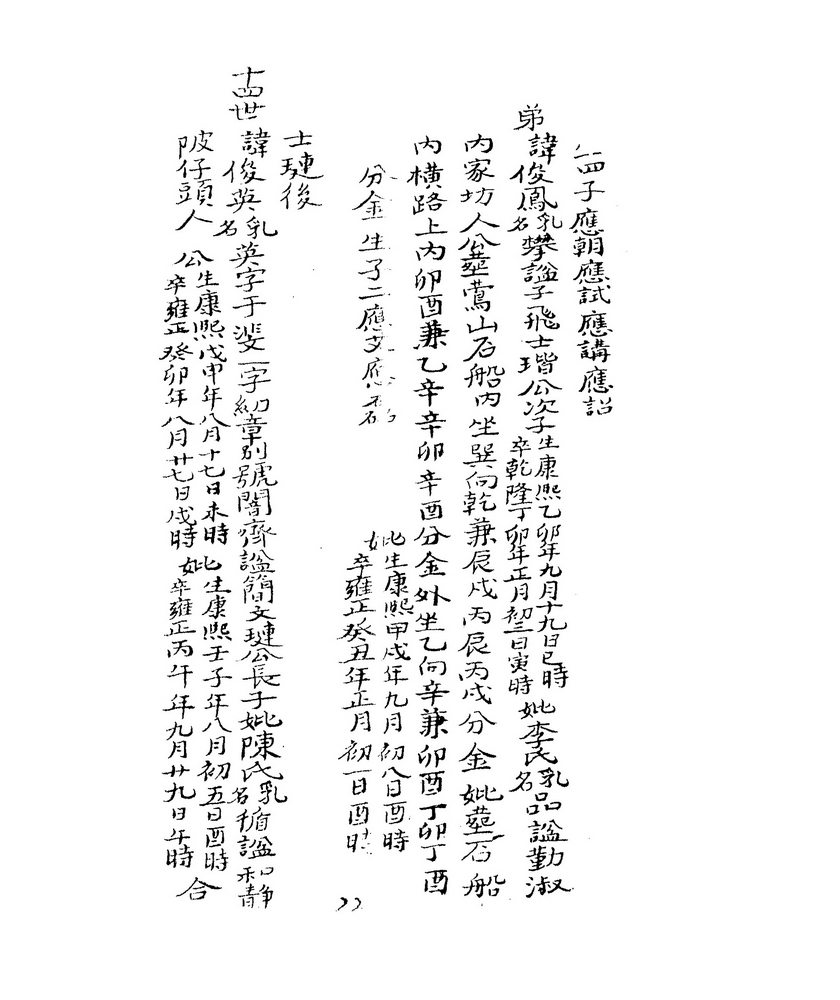 四子應朝應試應講應詔
弟諱俊鳳乳名攀謚子飛士瑎公次子生康熙乙卯年九月十九日巳時卒乾隆丁卯年正月初三日寅時妣李氏乳名品謚勤淑
內家坊人公塟鶯山石船內坐巽向乾兼辰戌丙辰丙戌分金妣塟石船
內橫路上內卯酉兼乙辛辛卯辛酉分金外坐乙向辛兼卯酉丁卯丁酉
分金生子二應文應名 妣生康熙甲戌年九月初八日酉時卒雍正癸丑年正月初一日酉時
士璉後
十四世諱俊英乳名英字于斐一字幼章別號闇齋謚簡文璉公長子妣陳氏乳名循謚和靜
陂仔頭人公生康熙戊申年八月十七日未時卒雍正癸卯年八月廿七日戌時妣生康熙壬子年八月初五日酉時卒雍正丙午年九月廿九日午時合
22